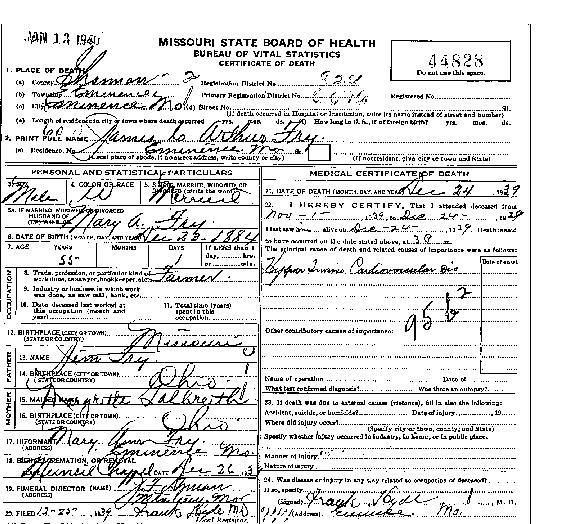 JAN 13 1940
MISSOURI STATE BOARD OF HEALTH
BUREAU OF VITAL STATISTICS
CERTIFICATE OF DEATH
44828
Do not use this space.
1. PLACE OF DEATH
(a) County Shannon 2 Registration District No.
(b) Township Eminence Primary Registration District No. Registered No.
(c) City Eminence Mo (d) Street No. St.
(If death occurred in Hospital or Institution, write its name instead of street and number)
(e) Length of residence in city or town where death occurred yrs. mos. ds. How long in U. S., if of foreign birth? yrs. mos. ds.
2. PRINT FULL NAME James Arthur Fry
(a) Residence. No. Eminence Mo St.
(Usual place of abode, if no street address, write county or city) (If nonresident, give city or town and State)
PERSONAL AND STATISTICAL PARTICULARS
3. SEX Male 4. COLOR OR RACE W 5. SINGLE, MARRIED, WIDOWED, OR DIVORCED (write the word) Married
5A. IF MARRIED, WIDOWED, OR DIVORCED
HUSBAND OF Mary A. Fry
6. DATE OF BIRTH (MONTH, DAY, AND YEAR) Dec 23-1884
7. AGE YEARS MONTHS DAYS If LESS than 1 day, hrs. or min.
55 1
OCCUPATION
8. Trade, profession, or particular kind of work done, sawyer, bookkeeper, etc. Farmer
9. Industry or business in which work was done, as saw mill, bank, etc.
10. Date deceased last worked at this occupation (month and year)
11. Total time (years) spent in this occupation
12. BIRTHPLACE (CITY OR TOWN) Missouri
(STATE OR COUNTRY)
FATHER
13. NAME Jim Fry
14. BIRTHPLACE (CITY OR TOWN) Ohio
(STATE OR COUNTRY)
MOTHER
15. MAIDEN NAME
16. BIRTHPLACE (CITY OR TOWN) Ohio
(STATE OR COUNTRY)
17. INFORMANT Mary Ann Fry
(ADDRESS) Eminence Mo
18. BURIAL, CREMATION, OR REMOVAL
Council Chappel DATE Dec 26
19. FUNERAL DIRECTOR (NAME)
(ADDRESS) Mo
20. FILED 12-25-1939 Frank Hyde MD
Local Registrar.
MEDICAL CERTIFICATE OF DEATH
21. DATE OF DEATH (MONTH, DAY, AND YEAR) Dec 24 1939
22. I HEREBY CERTIFY, That I attended deceased from
Nov-1- 1939, to Dec-24- 1939
I last saw alive on Dec-24- 1939 Death is said
to have occurred on the date stated above, at
The principal causes of death and related causes of importance were as follows:
Date of onset
Cardiovascular Dis
95
Other contributory causes of importance:
Name of operation Date of
What test confirmed diagnosis? Was there an autopsy?
23. If death was due to external causes (violence), fill in also the following:
Accident, suicide, or homicide? Date of injury 19
Where did injury occur?
(Specify city or town, county, and State)
Specify whether injury occurred in industry, in home, or in public place.
Manner of injury
Nature of injury
24. Was disease or injury in any way related to occupation of deceased?
If so, specify
(Signed) Frank Hyde M. D.
(Address) Eminence Mo.